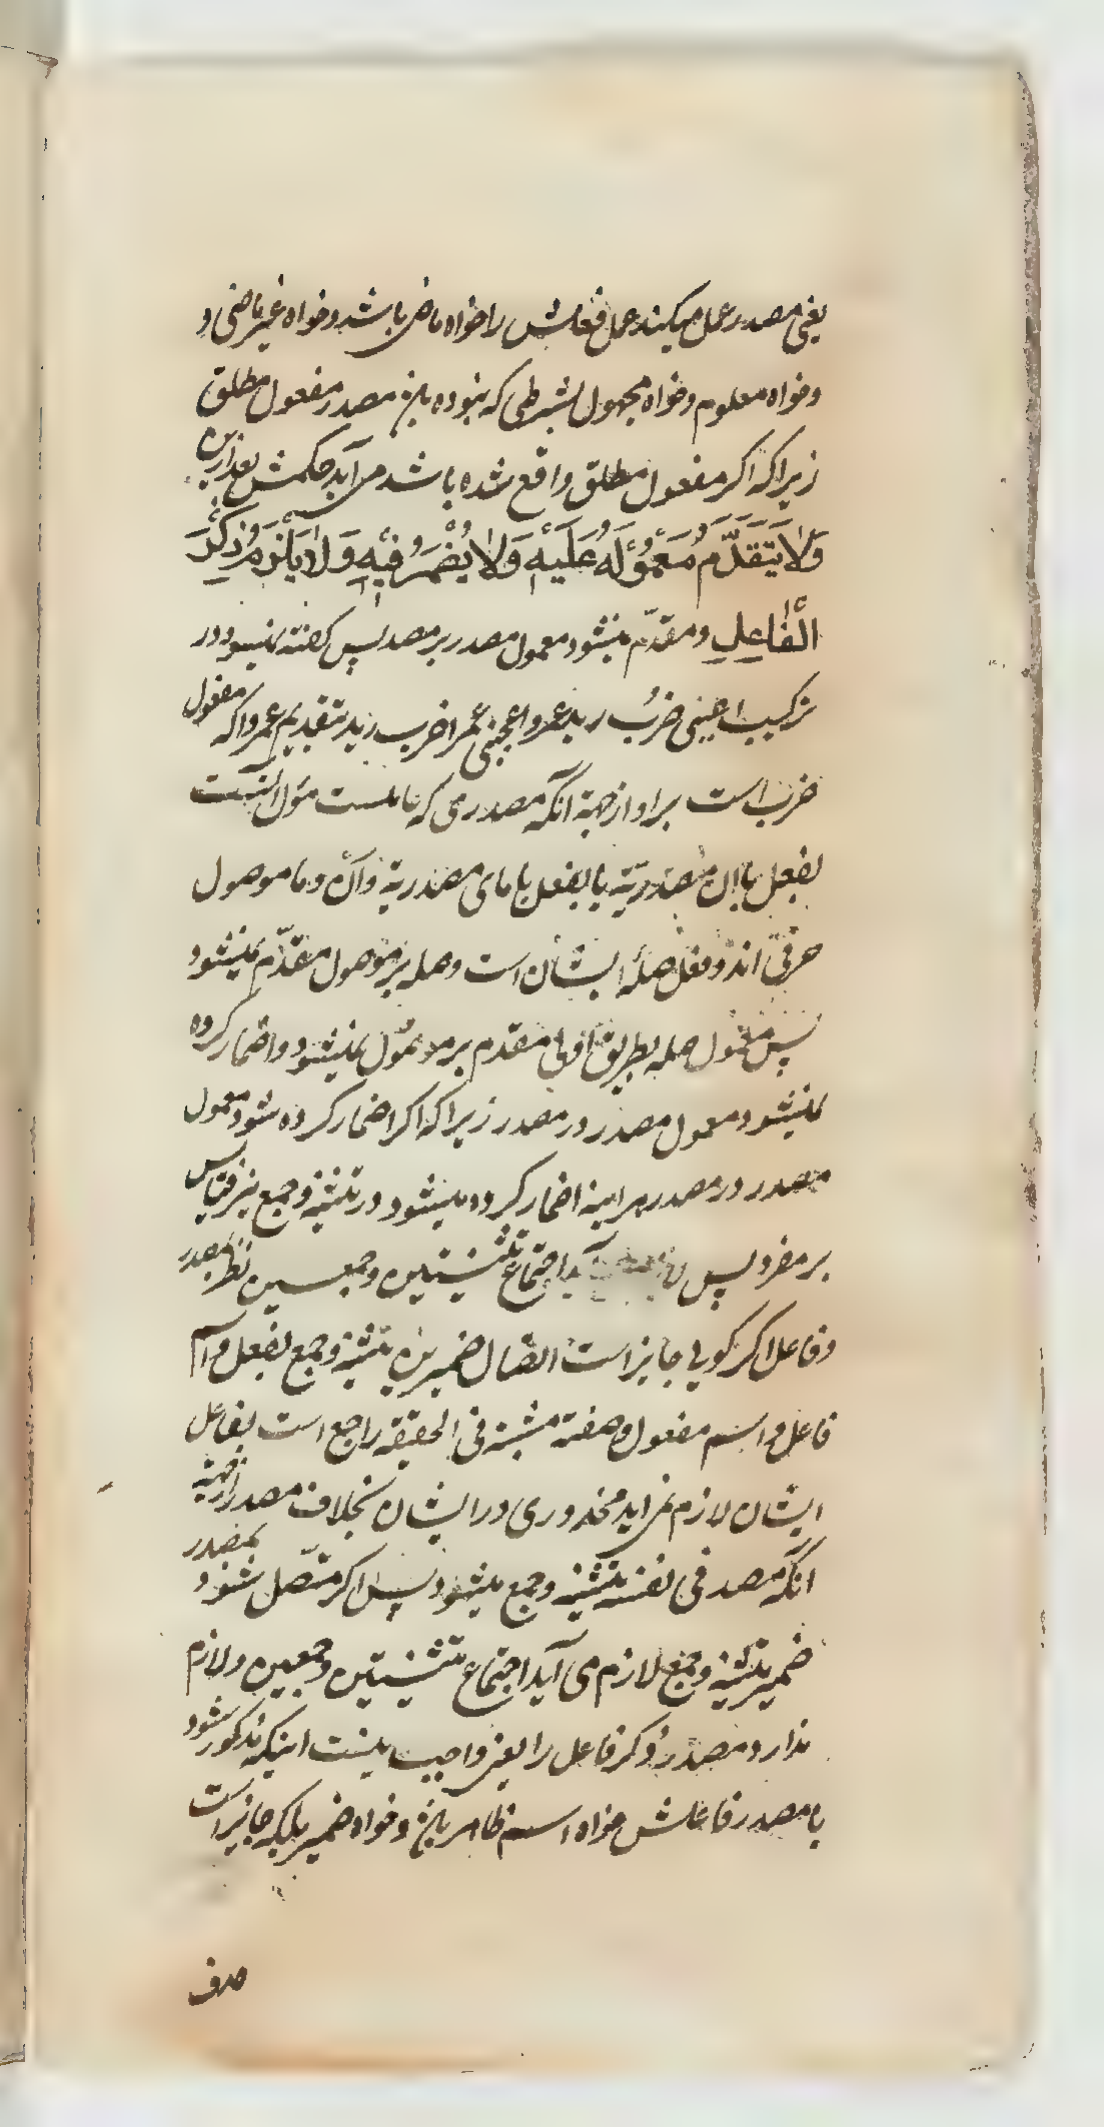 یعنی مصدر عمل میکند عمل فعلش را خواه ماضی باشد و خواه غیر ماضی و
و خواه معلوم و خواه مجهول بشرطی که نبوده باشد مصدر مفعول مطلق
زیرا که اکر مفعول مطلق واقع شده باشد می آید حکمش بعد ازین
وَلاَ یَتَقَدَّمُ مَعْمُوْلُهُ عَلَیْهِ وَلاَ یُضْمَرُ فِیْهِ وَلاَ یَلْزَمُ ذِکْرُ
الْفَاعِلِ و مقدّم نمیشود معمول مصدر بر مصدر پس کفته نمیشود در
ترکیب اعجبنی ضربُ زید عمروا اعجبنی عمرا ضرب زید بتقدیم عمروا که مفعول
ضرب است بر او از جهة آنکه مصدر می که عاملست مؤل است
بفعل با ان مصدریّه یا بفعل با مای مصدریة و اَنْ و ما موصول
حرفی اند و فعل صلهٔ ایشان است و صله بر موصول مقدّم نمیشود
پس معمول صله بطریق اولی مقدم بر موصول نمیشود و اضمار کرده
نمیشود معمول مصدر در مصدر زیرا که اکر اضمار کرده شود معمول
مصدر در مصدر هراینه اضمار کرده میشود در تثنیه و جمع نیز قیاس
بر مفرد پس آید اجتماع تثنیتین و جمعین نظر بمصدر
و فاعل اکر کویی جایز است اتصال ضمیرین تثنیه و جمع بفعل و اسم
فاعل و اسم مفعول و صفة مشبهه فی الحقیقه راجع است بفاعل
ایشان لازم نمی اید محذوری در ایشان بخلاف مصدر از جهة
انکه مصدر فی نفسه تثنیه و جمع میشود پس اکر متّصل شود بمصدر
ضمیر تثنیه و جمع لازم می آید اجتماع تثنیتین و جمعین و لازم
ندارد مصدر ذکر فاعل را یعنی واجب نیست اینکه مذکور شود
با مصدر فاعلش خواه اسم ظاهر باشد و خواه ضمیر بلکه جایز است
حذف